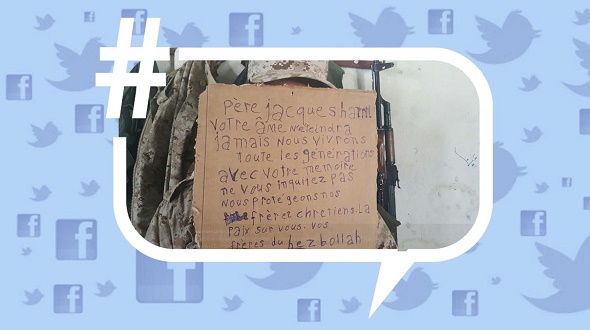 #
Père jacques hamel
Votre âme neteindra
jamais nous vivrons
toute les générations
avec votre memoire
ne vous inquitez pas
nous protégeons nos
frère chretiens. La
Paix sur vous. vos
frères du hezbollah